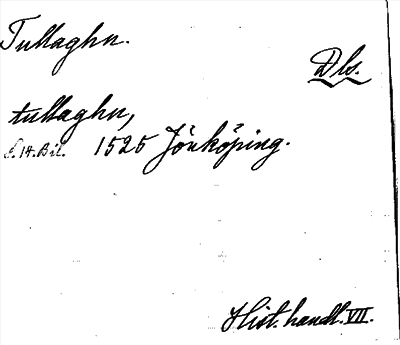 Tullaghn.
Dls.
tullaghn,
S. 14. Bil. 1525 Jönköping.
Hist. handl. VII.